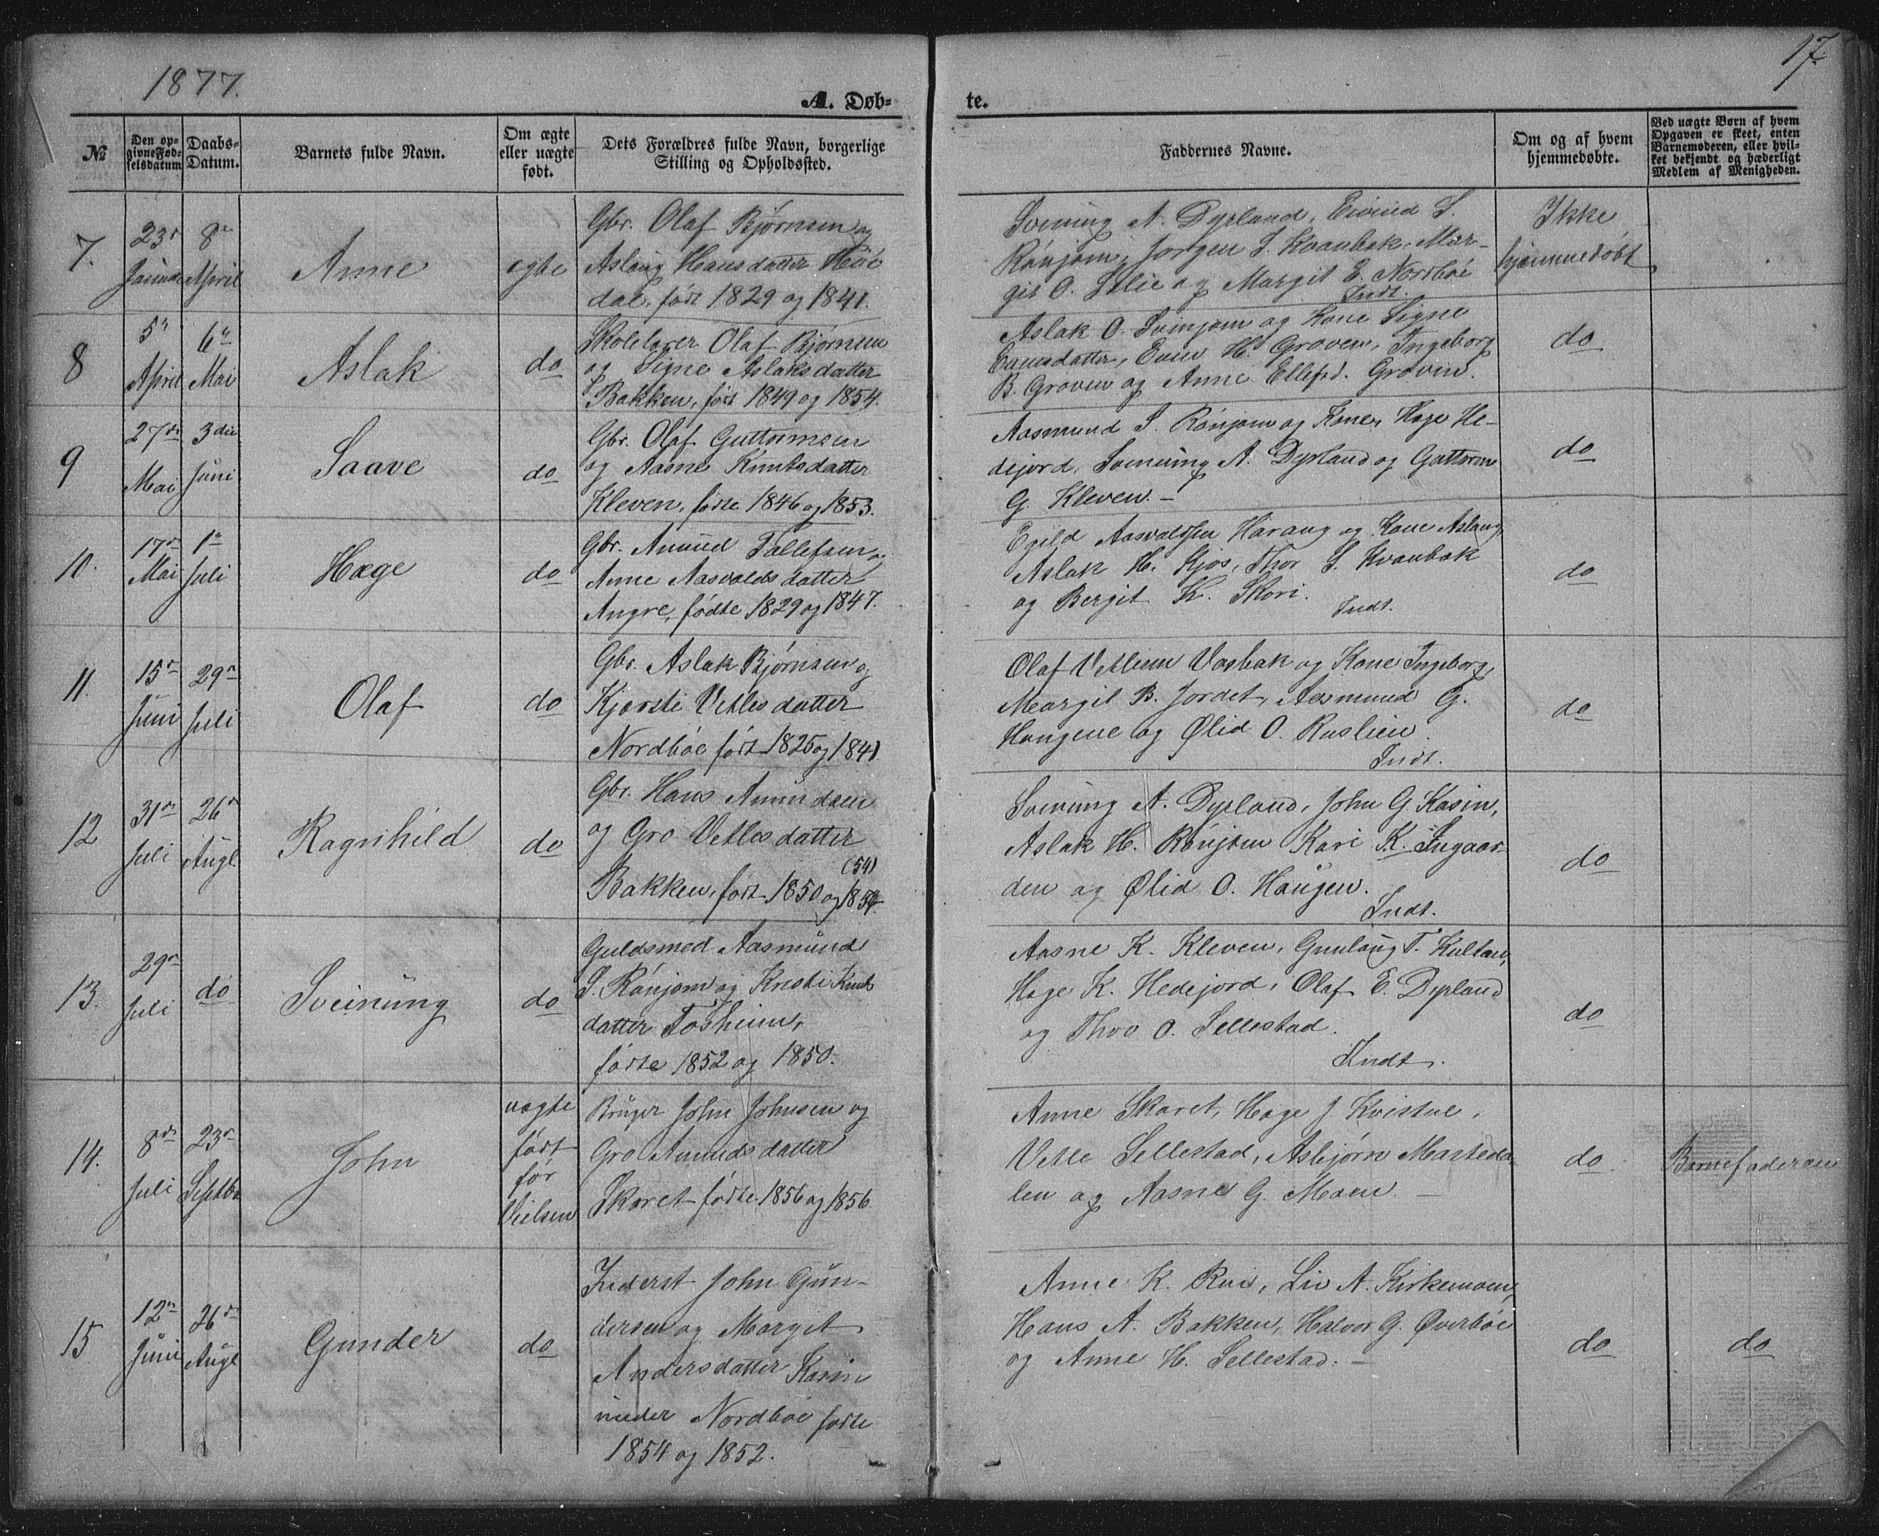 1877.
17.
A. Døb-
te.
№
Den op-
givne Fød-
selsdatum
Daabs-
Datum.
Barnets fulde Navn.
Om ægte
eller uægte
født.
Dets Forældres fulde Navn, borgerlige
Stilling og Opholdssted.
Faddernes Navne.
Om og af hvem
hjemmedøbte.
Ved uægte Børn af hvem
Opgaven er skeet, enten
Barnemoderen, eller hvil-
ket bekjendt og hæderligt
Medlem af Menigheden.
7.
23de
8de
April
Anne
egte
Gbr. Olaf Bjørnsen og
Aslaug Hansdatter Hõi
dal, født 1829 og 1841.
Sveinung A. Dyrland, Eivind S.
Rønjom, Jørgen S. Kvanbek, Mar-
git O. Lilie og Margit E. Nordbøe
Indt.
Ikke
hjemmedøbt
8
5te
April
6te
Mai
Aslak
do
Skolelærer Olaf Bjørnsen
og Signe Aslaksdatter
Bakken, født 1849 og 1854.
Aslak O. Svenjom og Kone Signe
Evensdatter, Even H. Groven, Ingeborg
B. Groven og Anne Ellefsd. Groven.
do
9
27de
Mai
3die
Juni
Saave
do
Gbr. Olaf Guttormsen
og Aasne Knutsdatter
Kleven, føtte 1846 og 1853.
Aasmund S. Rønjom og Kone, Hæge He-
dejord, Sveinung A. Dyrland og Guttorm
G. Kleven. —
do
10.
17de
Mai
1te
Juli
Hæge
do
Gbr. Amund Tallefsen og
Anne Aasvaldsdatter
Angre, fødte 1829 og 1847.
Egild Aasvaldsen Harang og Kone Aslaug,
Aslak H. Kjos, Thor S. Kvanbek
og Bergit K. Skori.
Indt.
do
11.
15de
Juni
29de
Juli
Olaf
do
Gbr. Aslak Bjørnsen og
Kjersti Vetlesdatter
Nordbøe født 1825 og 1841
Olaf Vetlesen Vasbak og Kone Ingeborg,
Margit B. Jordet, Aasmund G.
Haugene og Ølid O. Ruslien.
Indt.
do
12
31de
Juli
26de
Augt.
Ragnhild
do
Gbr. Hans Amundsen
og Gro Vetlesdatter
(54)
Bakken, født 1850 og 1854.
Sveinung A. Dyrland, John G. Kasin,
Aslak H. Rønjom Kari K. Ingaar-
den og Ølid O. Haugen.
Indt.
do
13.
29de
Juli
do
Sveinung
do
Guldsmed Aasmund
S. Rønjom og Kristi Knuts
datter Tosheim,
fødte 1852 og 1850.
Aasne K. Kleven, Gunlaug T. Kultan,
Hæge K. Hedejord, Olaf E. Dyrland
og Thov O. Sellestad.
Indt.
do
14.
8de
Juli
23de
Septbr
John
uægte
født
før
Vielsen
Bruger John Johnsen og
Gro Amundsdatter
Skaret fødte 1856 og 1856
Anne Skaret, Hæge J. Kvistue,
Vetle Sellestad, Asbjørn Mastedø-
len og Aasne G. Moen. —
do
Barnefaderen
15
12te
Juni
26de
Augt
Gunder
do
Inderst John Gun-
dersen og Margit
Andersdatter Kasin
under Nordbøe fødte
1854 og 1852.
Anne K. Rui, Liv A. Kirkemoen,
Hans A. Bakken, Halvor G. Øverbøe
og Anne H. Sellestad. —
do
do